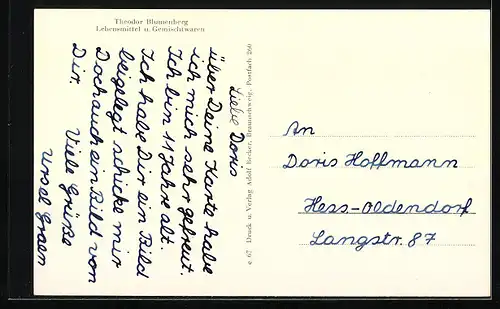 Theodor Blumenberg
Lebensmittel u. Gemischtwaren
Liebe Doris
über Deine Karte habe
ich mich sehr gefreut.
Ich bin 11 Jahre alt.
Ich habe Dir ein Bild
beigelegt schicke mir
Doch auch ein Bild von
Dir.
Viele Grüße
Ursel Graen
e 67 Druck u. Verlag Adolf Becker, Braunschweig, Postfach 260
An
Doris Hoffmann
Hess-Oldendorf
Langstr. 87